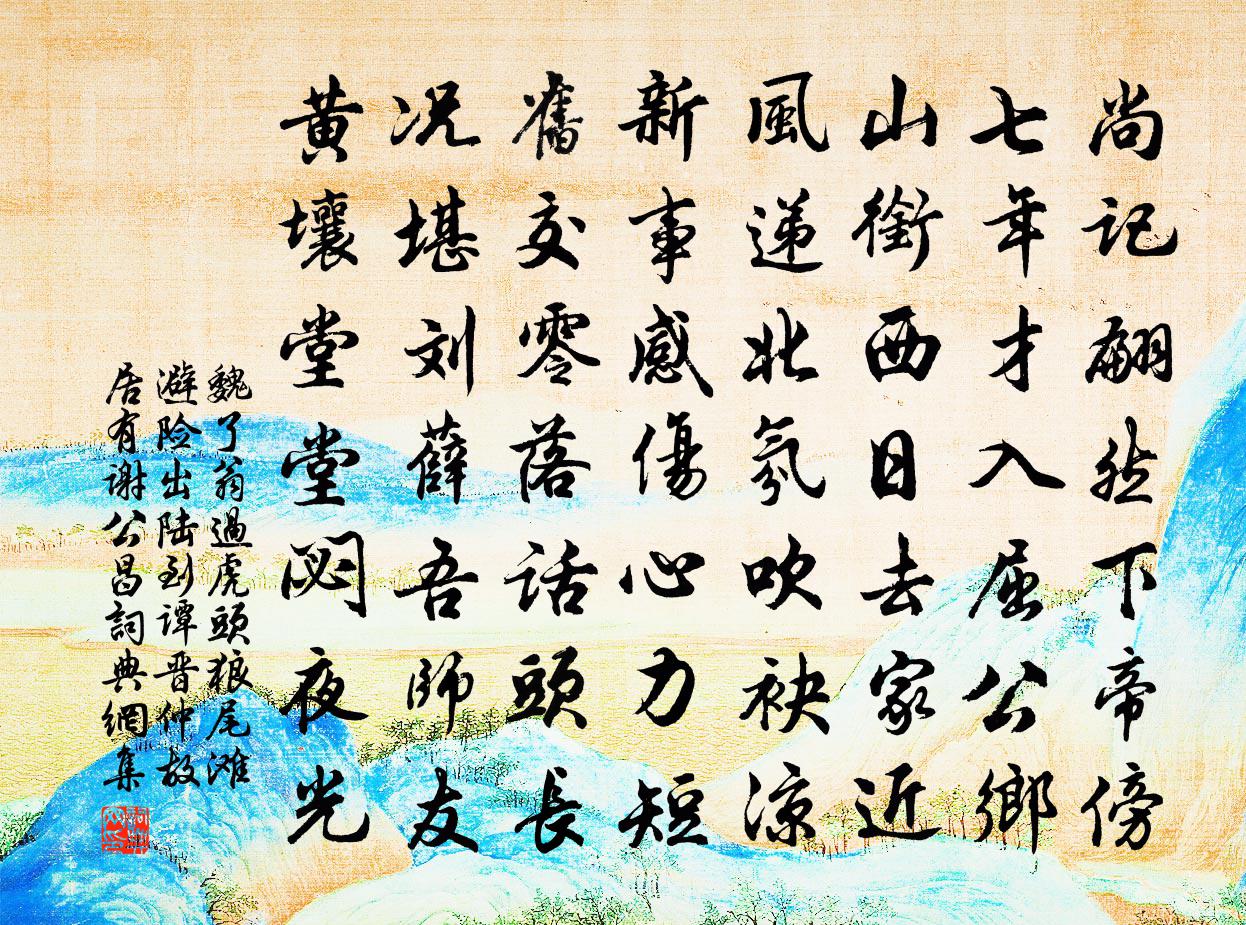 尚记翩然下帝傍
七年才入屈公鄉
山銜西日去家近
風递北氛吹袂凉
新事感傷心力短
舊交零落話頭長
况堪刘薛吾師友
黄壤堂堂閟夜光
魏了翁過虎頭狼尾滩
避险出陆到谭晋仲故
居有谢公昌詞典網集